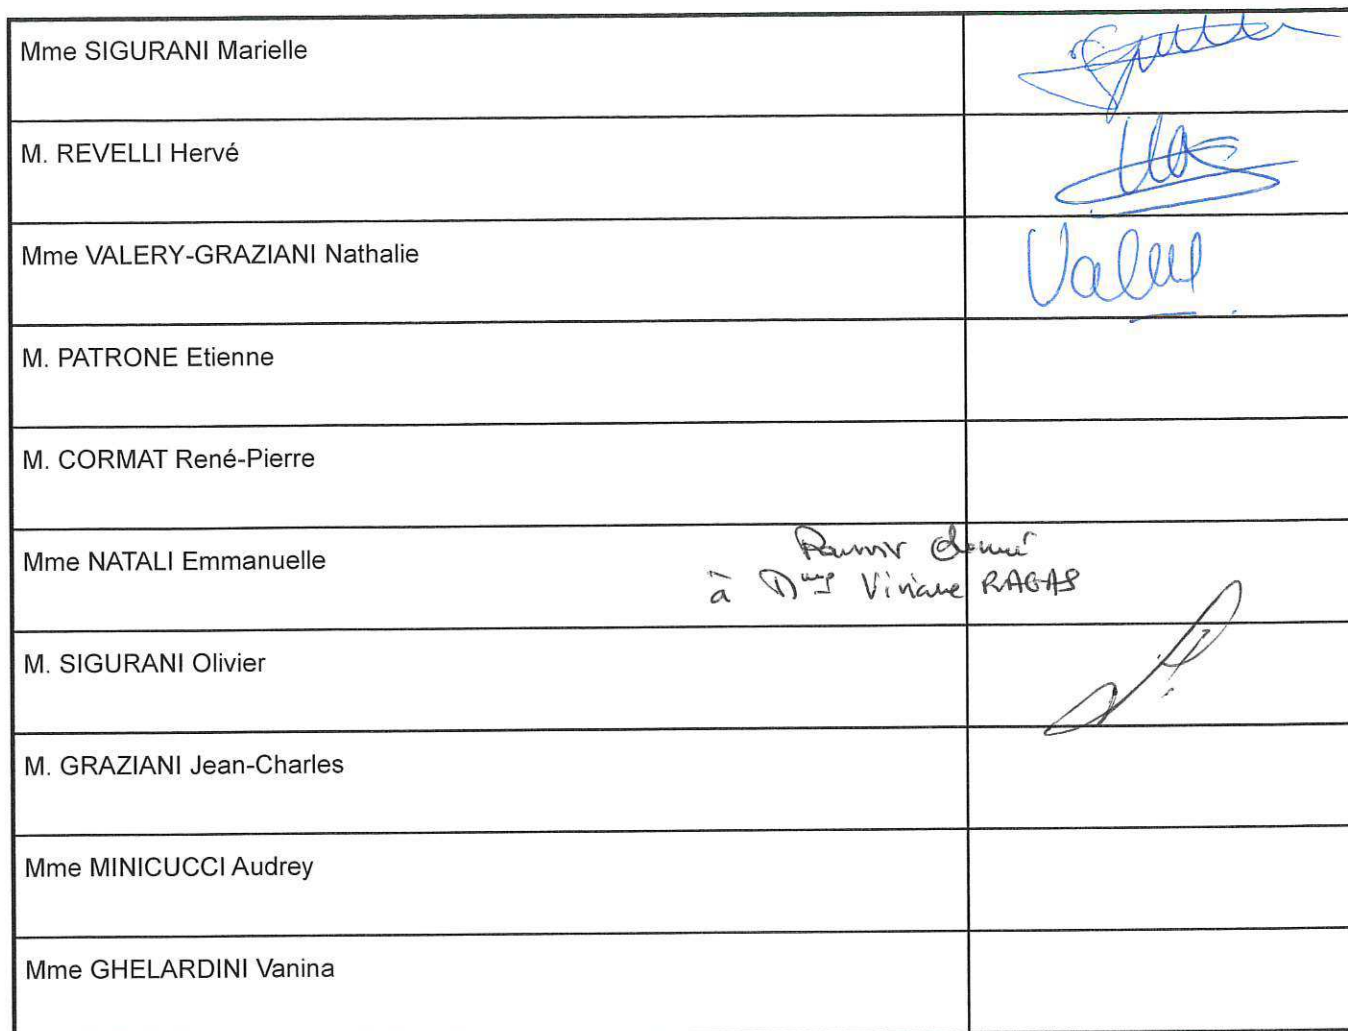 Mme SIGURANI Marielle
M. REVELLI Hervé
Mme VALERY-GRAZIANI Nathalie
M. PATRONE Etienne
M. CORMAT René-Pierre
Mme NATALI Emmanuelle
Pouvoir donné
à Viviane RAGAS
M. SIGURANI Olivier
M. GRAZIANI Jean-Charles
Mme MINICUCCI Audrey
Mme GHELARDINI Vanina